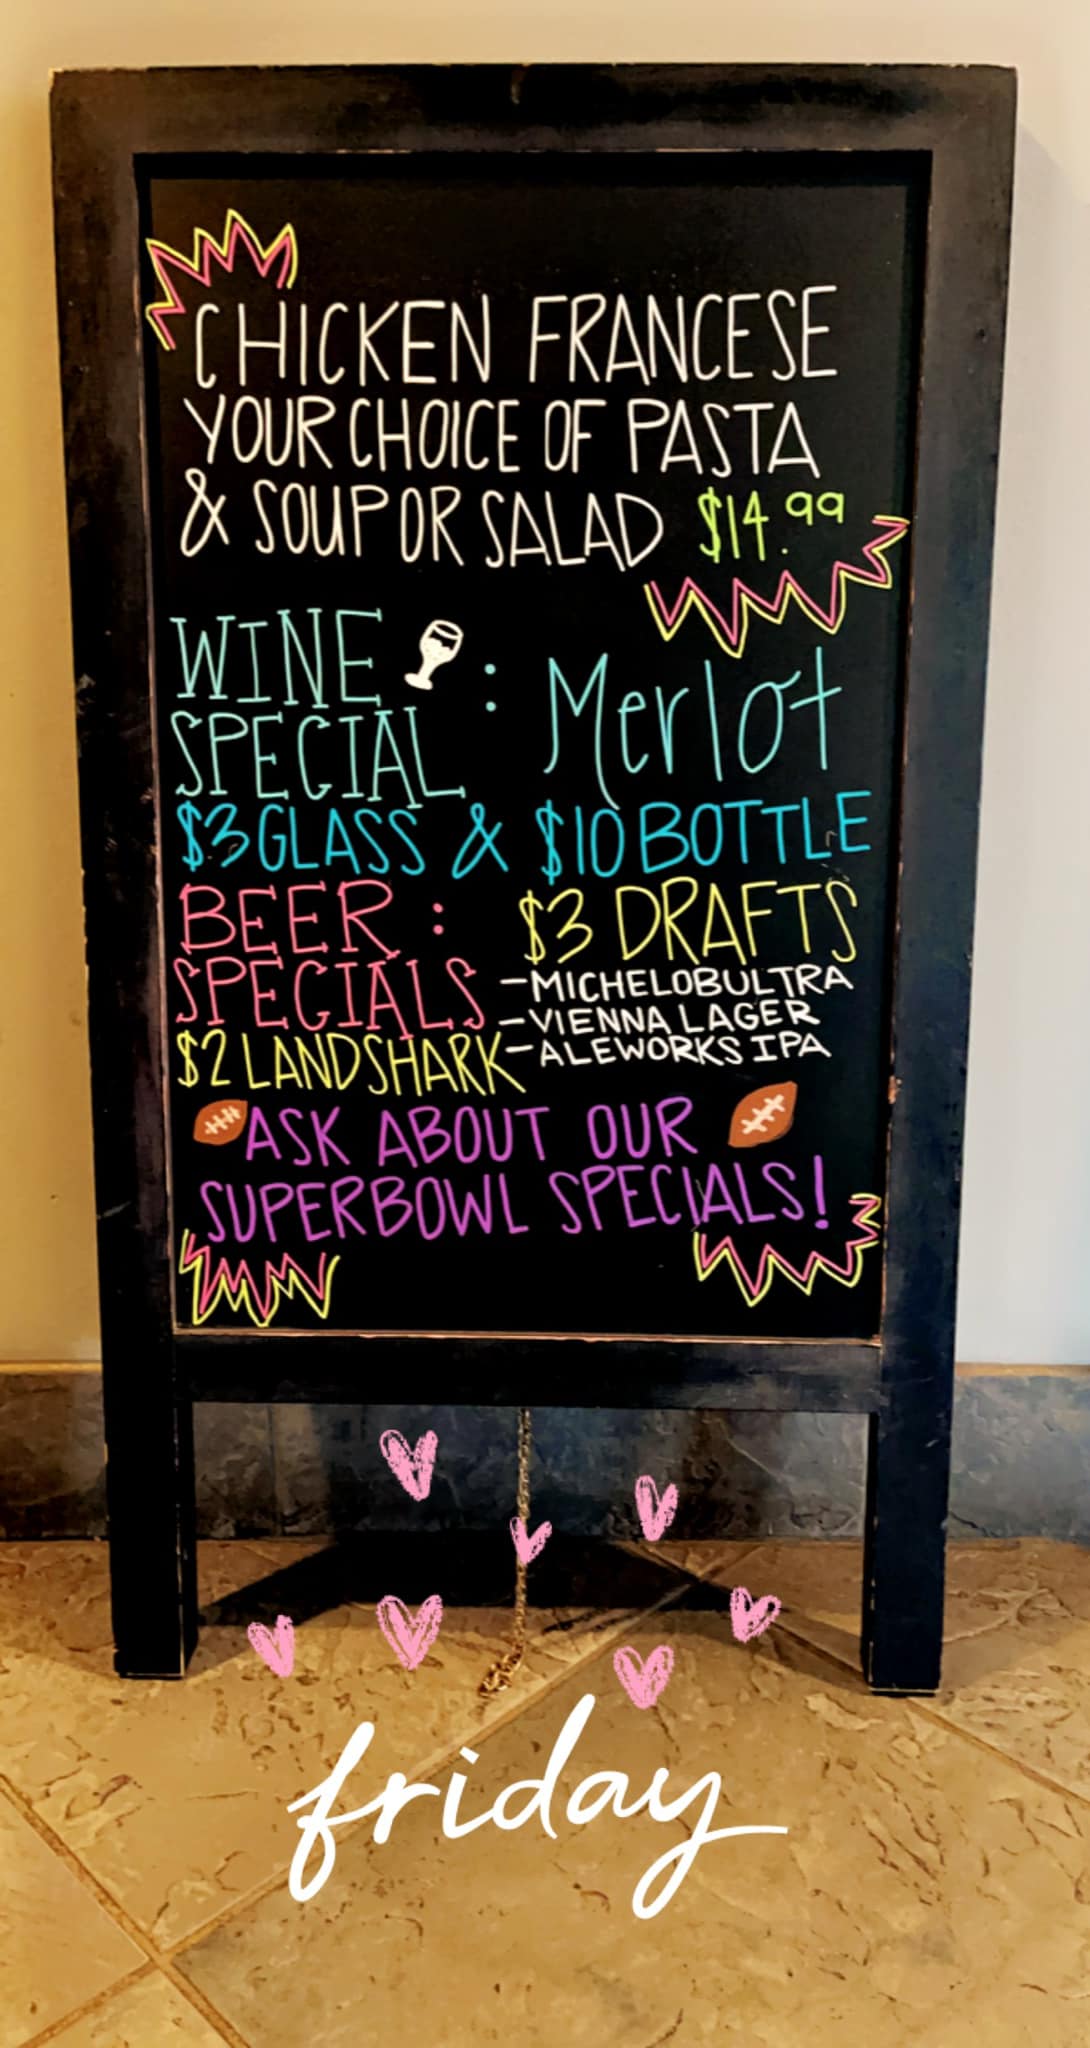 CHICKEN FRANCESE
YOUR CHOICE OF PASTA
& SOUP OR SALAD $14.99
WINE
SPECIAL : Merlot
$3 GLASS & $10 BOTTLE
BEER :
SPECIALS
$2 LANDSHARK
$3 DRAFTS
-MICHELOB ULTRA
-VIENNA LAGER
-ALEWORKS IPA
ASK ABOUT OUR
SUPERBOWL SPECIALS!
friday